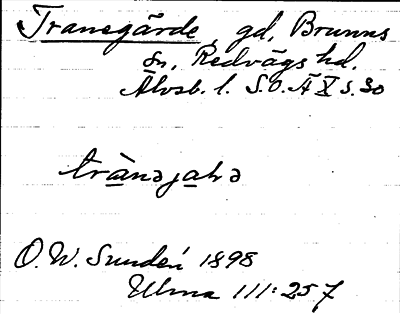 Tranegärde, gd, Brunns
sn, Redvägs hd.
Älvsb. l. S.O.Ä X s. 30
trànəjaḷə
O. W. Sundén 1898
Ulma 111:257